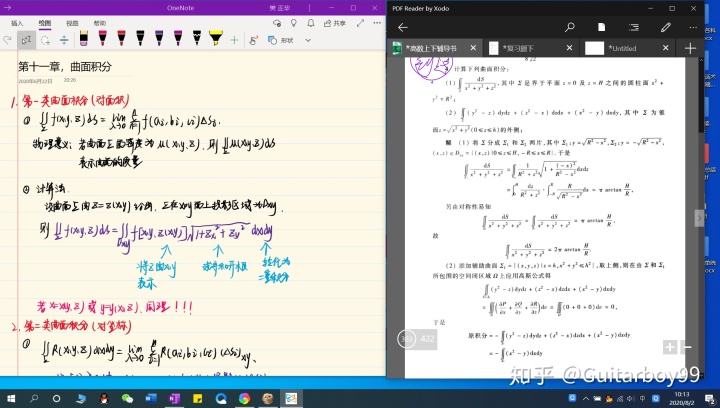 OneNote
樊 正华
插入 绘图 视图 帮助
共享
形状
第十一章，曲面积分
2020年6月22日 20:26
1. 第一类曲面积分(对面积)
① ∬f(x,y,z)dS = lim λ→0 Σ f(ai, bi, ci)ΔSi.
物理意义：若曲面Σ面密度为 μ(x,y,z), 则 ∬μ(x,y,z)dS
表示曲面的质量
② 计算法.
设曲面Σ由z=z(x,y)给出, Σ在xoy面上投影区域为Dxy.
则 ∬f(x,y,z)dS = ∬f[x,y,z(x,y)]√1+Zx²+Zy² dxdy
将z用x,y
表示
二重积分
若x=x(y,z)或y=y(x,z). 同理!!!
2. 第二类曲面积分(对坐标)
① ∬R(x,y,z)dxdy = lim λ→0 Σ R(ai, bi, ci)(ΔSi)xy,
PDF Reader by Xodo
*高数上下辅导书
*复习题下
*Untitled
计算下列曲面积分：
(1) ∬ dS/(x²+y²+z²), 其中 Σ 是界于平面 z=0 及 z=H 之间的圆柱面 x²+
y²=R²;
(2) ∬(y²−z)dydz+(z²−x)dzdx+(x²−y)dxdy, 其中 Σ 为锥
面z=√x²+y²(0≤z≤h)的外侧;
解 (1) 将 Σ 分成 Σ₁ 和 Σ₂ 两片, 其中 Σ₁: y=√R²−x², Σ₂: y=−√R²−x²,
(x,z)∈Dxz={(x,z)|0≤z≤H, −R≤x≤R}. 于是
∬ dS/(x²+y²+z²) = ∬ 1/(R²+z²) √1+(−x)²/(R²−x²) dxdz
= ∫ dz/(R²+z²) · ∫ R/√R²−x² dx = π arctan H/R.
另由对称性易知
∬ dS/(x²+y²+z²) = ∬ dS/(x²+y²+z²) = π arctan H/R,
故
∬ dS/(x²+y²+z²) = 2π arctan H/R.
(2) 添加辅助曲面 Σ₁={(x,y,z)|z=h, x²+y²≤h²}, 取上侧, 则在由 Σ 和 Σ₁
所包围的空间闭区域 Ω 上应用高斯公式得
∬(y²−z)dydz+(z²−x)dzdx+(x²−y)dxdy
= ∭(∂P/∂x+∂Q/∂y+∂R/∂z)dv = ∭(0+0+0)dv = 0,
于是
383 422
原积分 = −∬(y²−z)dydz+(z²−x)dzdx+(x²−y)dxdy
= −∬(x²−y)dxdy
知乎 @Guitarboy99
10:13
2020/8/2